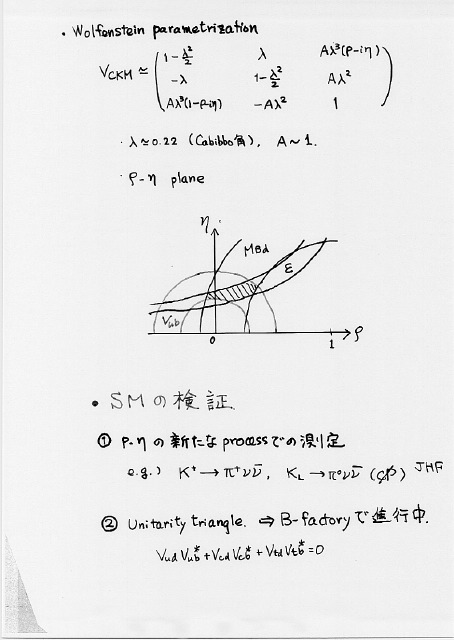 • Wolfenstein parametrization
V_CKM ≃ ( 1-λ²/2 λ Aλ³(ρ-iη)
-λ 1-λ²/2 Aλ²
Aλ³(1-ρ-iη) -Aλ² 1 )
· λ≃0.22 (Cabibbo角), A~1.
· ρ-η plane
η
M_Bd
ε
V_ub
0
1
ρ
• SMの検証
① ρ-ηの新たなprocessでの測定
e.g.) K⁺→π⁺νν̄, K_L→π⁰νν̄ (CP) JHF
② Unitarity triangle. ⇒ B-factoryで進行中.
V_ud V_ub* + V_cd V_cb* + V_td V_tb* = 0